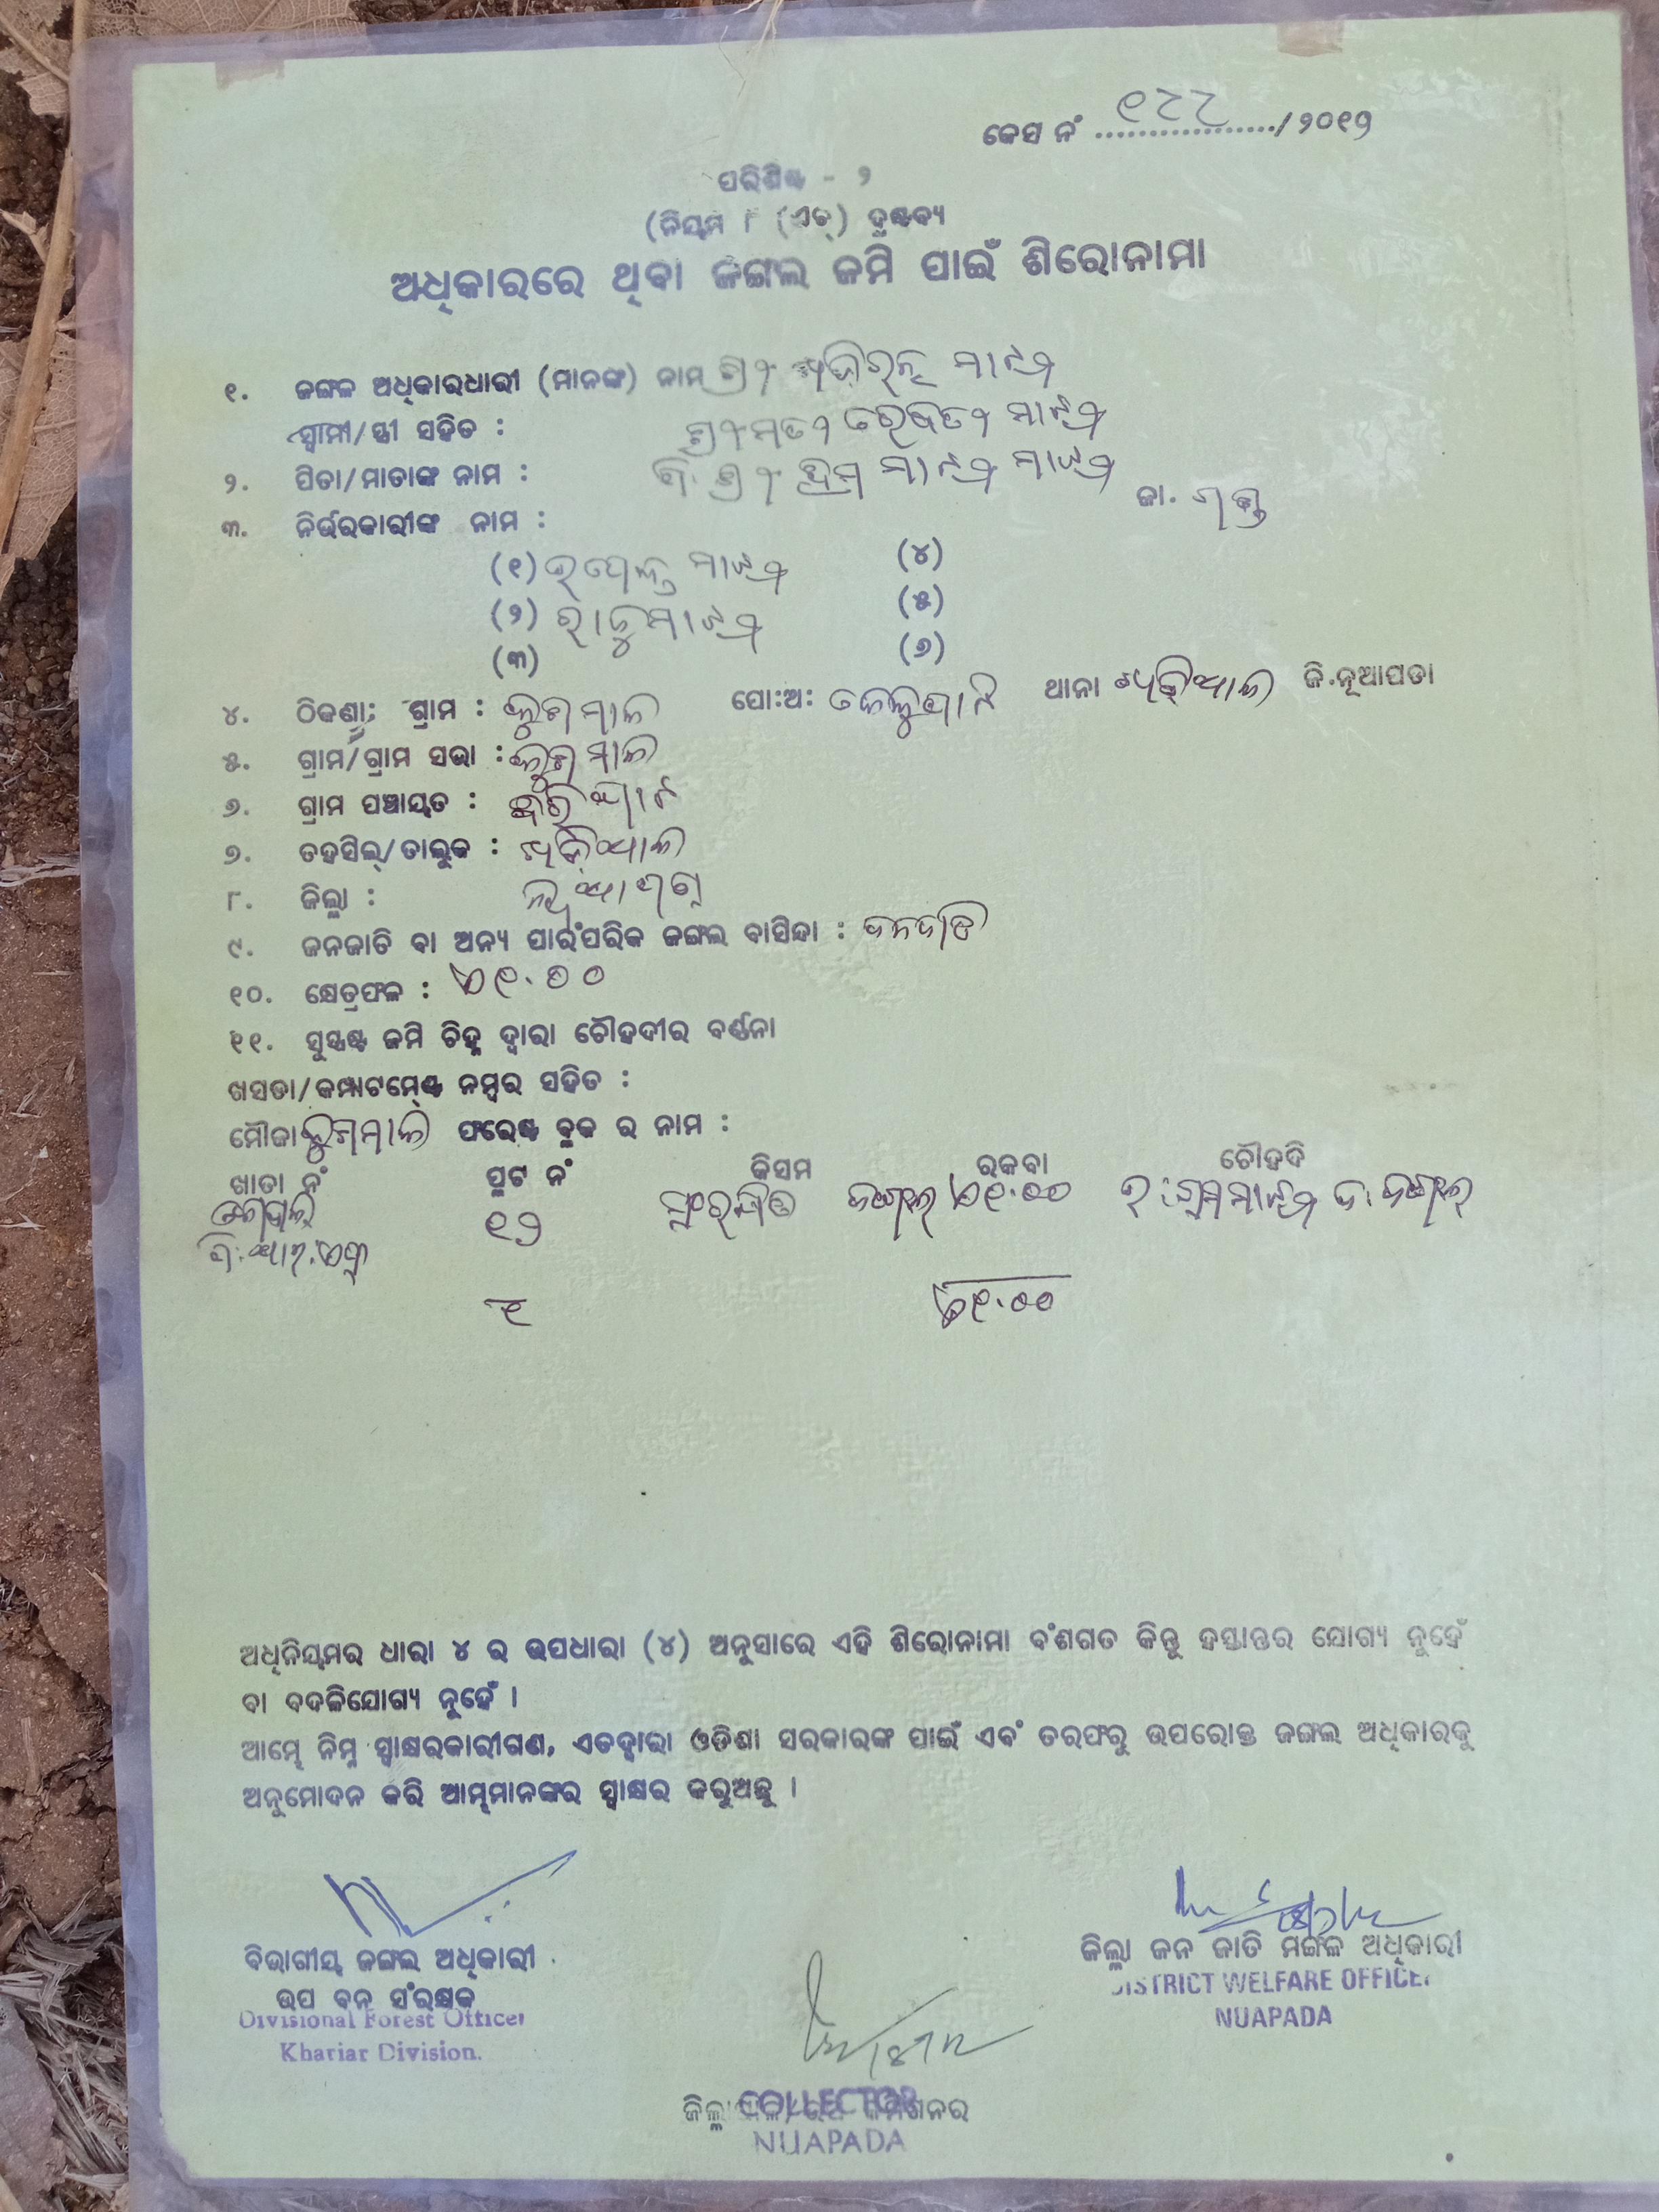 କେସ ନଂ ୧୮୮ /୨୦୧୭
ପରିଶିଷ୍ଟ - ୨
(ନିୟମ ୮ (ଏଚ୍) ଦ୍ରଷ୍ଟବ୍ୟ
ଅଧିକାରରେ ଥିବା ଜଙ୍ଗଲ ଜମି ପାଇଁ ଶିରୋନାମା
୧. ଜଙ୍ଗଳ ଅଧିକାରଧାରୀ (ମାନଙ୍କ) ନାମ ଶ୍ରୀ ମାଝୀ
ସ୍ୱାମୀ/ସ୍ତ୍ରୀ ସହିତ : ଶ୍ରୀମତୀ ରେବତୀ ମାଝୀ
୨. ପିତା/ମାତାଙ୍କ ନାମ : ମାଝୀ
ଜା. ଗଣ୍ଡ
୩. ନିର୍ଭରକାରୀଙ୍କ ନାମ :
(୧) ମାଝୀ (୪)
(୨) ରାଜୁ ମାଝୀ (୫)
(୩) (୬)
୪. ଠିକଣା; ଗ୍ରାମ : ପୋ:ଅ: ଥାନା ଖରିଆଲ ଜି.ନୂଆପଡା
୫. ଗ୍ରାମ/ଗ୍ରାମ ସଭା :
୬. ଗ୍ରାମ ପଞ୍ଚାୟତ :
୭. ତହସିଲ୍/ତାଲୁକ : ଖରିଆଲ
୮. ଜିଲ୍ଲା : ନୂଆପଡା
୯. ଜନଜାତି ବା ଅନ୍ୟ ପାରଂପରିକ ଜଙ୍ଗଲ ବାସିନ୍ଦା : ଜନଜାତି
୧୦. କ୍ଷେତ୍ରଫଳ : ଏ୧.୦୦
୧୧. ସୁସ୍ପଷ୍ଟ ଜମି ଚିହ୍ନ ଦ୍ୱାରା ଚୌହଦୀର ବର୍ଣ୍ଣନା
ଖସଡା/କମ୍ପାଟମେଣ୍ଟ ନମ୍ବର ସହିତ :
ମୌଜା ଫରେଷ୍ଟ ବ୍ଲକ ର ନାମ :
ଖାତା ନଂ ପ୍ଲଟ ନଂ କିସମ ରକବା ଚୌହଦି
୧୨ ସଂରକ୍ଷିତ ଜଙ୍ଗଲ ଏ୧.୦୦ ଜଙ୍ଗଲ
ପି.ଆର.ଏଫ
୧ ଏ୧.୦୦
ଅଧିନିୟମର ଧାରା ୪ ର ଉପଧାରା (୪) ଅନୁସାରେ ଏହି ଶିରୋନାମା ବଂଶଗତ କିନ୍ତୁ ହସ୍ତାନ୍ତର ଯୋଗ୍ୟ ନୁହେଁ
ବା ବଦଳିଯୋଗ୍ୟ ନୁହେଁ ।
ଆମ୍ଭେ ନିମ୍ନ ସ୍ୱାକ୍ଷରକାରୀଗଣ, ଏତଦ୍ୱାରା ଓଡିଶା ସରକାରଙ୍କ ପାଇଁ ଏବଂ ତରଫରୁ ଉପରୋକ୍ତ ଜଙ୍ଗଲ ଅଧିକାରକୁ
ଅନୁମୋଦନ କରି ଆମ୍ଭମାନଙ୍କର ସ୍ୱାକ୍ଷର କରୁଅଛୁ ।
ବିଭାଗୀୟ ଜଙ୍ଗଲ ଅଧିକାରୀ
ଉପ ବନ ସଂରକ୍ଷକ
Divisional Forest Officer
Khariar Division.
ଜିଲ୍ଲା ଜନ ଜାତି ମଙ୍ଗଳ ଅଧିକାରୀ
DISTRICT WELFARE OFFICER
NUAPADA
COLLECTOR
NUAPADA